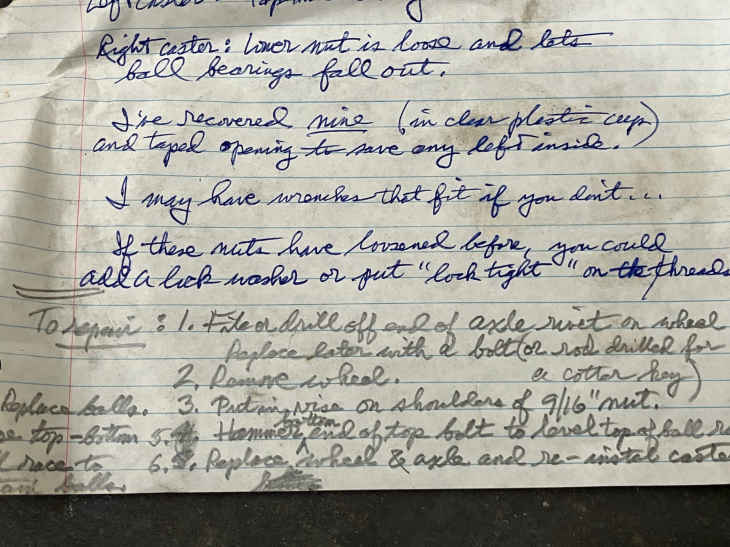 Left caster:
Right caster: Lower nut is loose and lets
ball bearings fall out.
I've recovered nine (in clear plastic cup)
and taped opening to save any left inside.
I may have wrenches that fit if you don't...
If these nuts have loosened before, you could
add a lock washer or put "lock tight" on the threads
To repair: 1. File or drill off end of axle rivet on wheel
Replace later with a bolt (or rod drilled for
2. Remove wheel. a cotter key)
Replace balls. 3. Put in vise on shoulders of 9/16" nut.
top-bottom 5. Hammer bottom end of top bolt to level top of ball
race to 6. Replace wheel & axle and re-instal caste
balls.